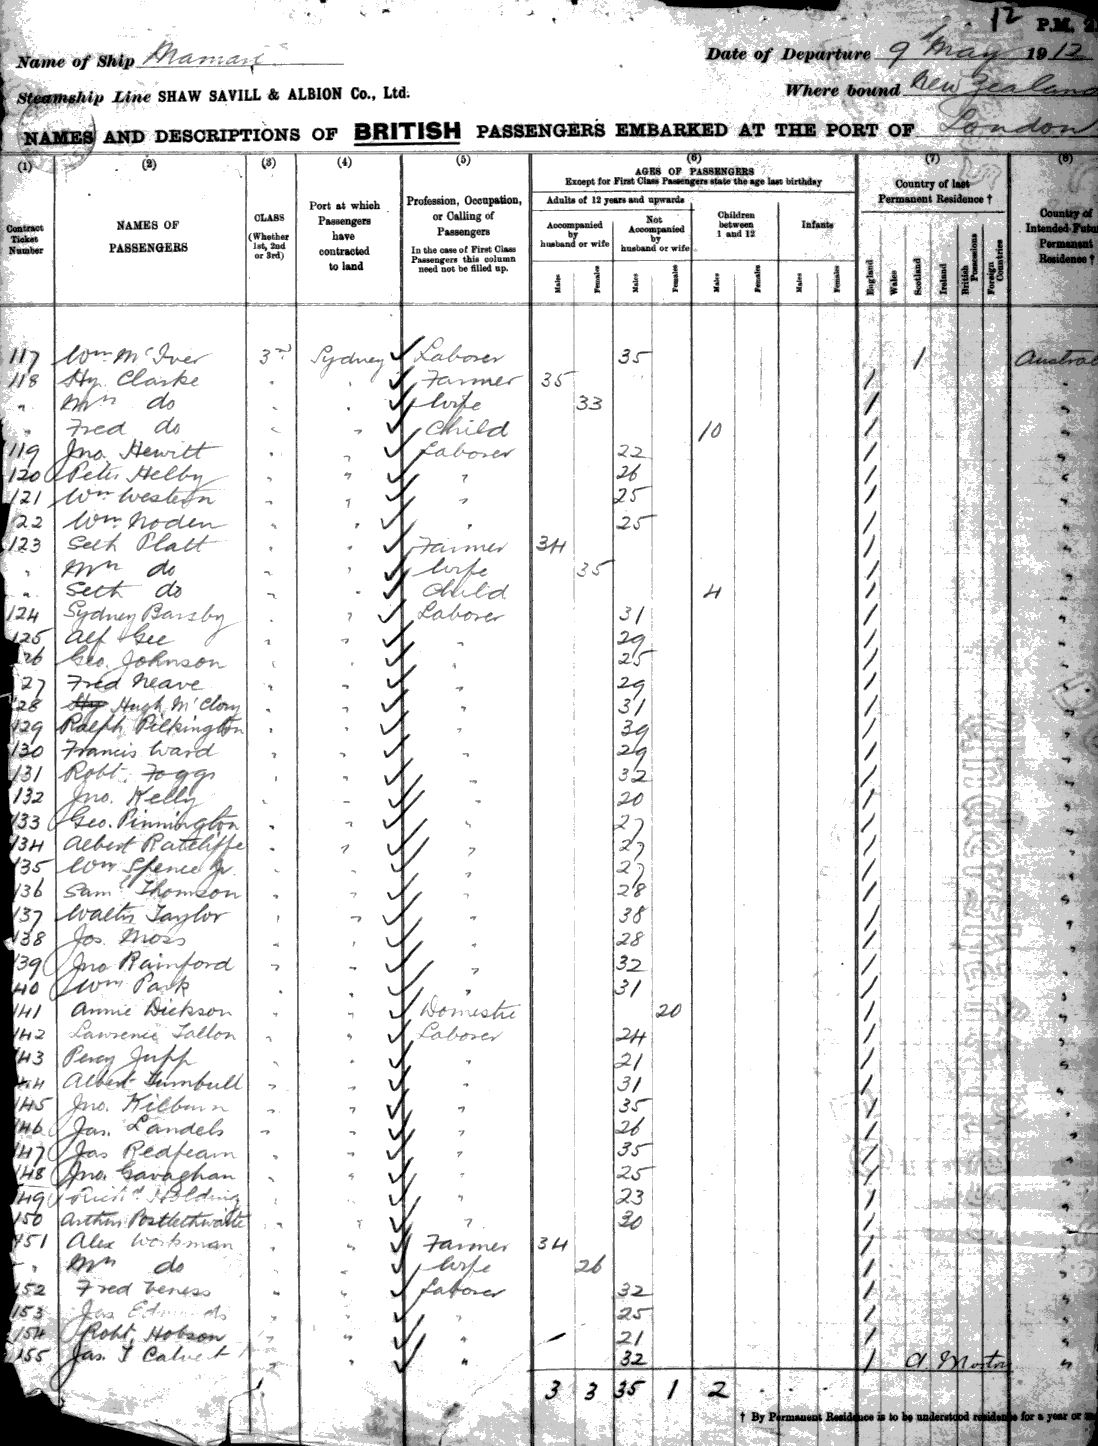 12 P.M. 2
Name of Ship Mamari Date of Departure 9 May 1912
Steamship Line SHAW SAVILL & ALBION Co., Ltd. Where bound New Zealand
NAMES AND DESCRIPTIONS OF BRITISH PASSENGERS EMBARKED AT THE PORT OF London
(1) (2) (3) (4) (5) (6) (7) (8)
Contract Ticket Number
NAMES OF PASSENGERS
CLASS (Whether 1st, 2nd or 3rd)
Port at which Passengers have contracted to land
Profession, Occupation, or Calling of Passengers
In the case of First Class Passengers this column need not be filled up.
AGES OF PASSENGERS
Except for First Class Passengers state the age last birthday
Adults of 12 years and upwards
Accompanied by husband or wife
Not Accompanied by husband or wife
Children between 1 and 12
Infants
Males Females Males Females Males Females Males Females
Country of last Permanent Residence †
England Wales Scotland Ireland British Possessions Foreign Countries
Country of Intended Futu Permanent Residence †
117 Wm McIver 3rd Sydney Laborer 35 1 Austral
118 Hy. Clarke " " Farmer 35 1 "
" Mrs do " " Wife 33 1 "
" Fred do " " Child 10 1 "
119 Jno. Hewitt " " Laborer 22 1 "
120 Peter Helby " " " 26 1 "
121 Wm Western " " " 25 1 "
22 Wm Noden " " " 25 1 "
123 Seth Platt " " Farmer 34 1 "
" Mrs do " " Wife 35 1 "
" Seth do " " Child 4 1 "
124 Sydney Barsby " " Laborer 31 1 "
125 Alf Gee " " " 29 1 "
26 Geo. Johnson " " " 25 1 "
27 Fred Neave " " " 29 1 "
128 Hy Hugh McClory " " " 31 1 "
129 Ralph Pilkington " " " 39 1 "
130 Francis Ward " " " 29 1 "
131 Robt. Foggs " " " 32 1 "
132 Jno. Kelly " " " 20 1 "
133 Geo. Pinnington " " " 27 1 "
134 Albert Ratcliffe " " " 27 1 "
135 Wm Spence Jr. " " " 27 1 "
136 Saml Thomson " " " 28 1 "
137 Walter Taylor " " " 38 1 "
138 Jos. Moss " " " 28 1 "
139 Jno Rainford " " " 32 1 "
40 Wm Park " " " 31 1 "
141 Annie Dickson " " Domestic 20 1 "
142 Lawrence Tallon " " Laborer 24 1 "
143 Percy Jupp " " " 21 1 "
44 Albert Turnbull " " " 31 1 "
145 Jno. Kilburn " " " 35 1 "
146 Jas. Landels " " " 26 1 "
147 Jas Redfearn " " " 35 1 "
148 Jno. Gavaghan " " " 25 1 "
149 Richd Holding " " " 23 1 "
150 Arthur Postlethwaite " " " 30 1 "
151 Alex Workman " " Farmer 34 1 "
" Mrs do " " Wife 26 1 "
152 Fred Veness " " Laborer 32 1 "
153 Jas " " " 25 1 "
154 Robt. Hobson " " " 21 1 "
155 Jas. T Calvert " " " 32 1 "
3 3 35 1 2 . . .
† By Permanent Residence is to be understood residence for a year or